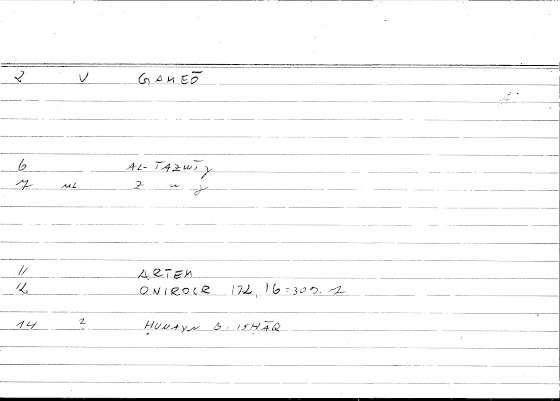 2 V GAMEŌ
6 AL-TAZWĪǧ
7 ML Z W ǧ
11 ARTEM
12 ONIROCR 172, 16=309. 7
14 2 ḤUNAYN B. ISḤĀQ